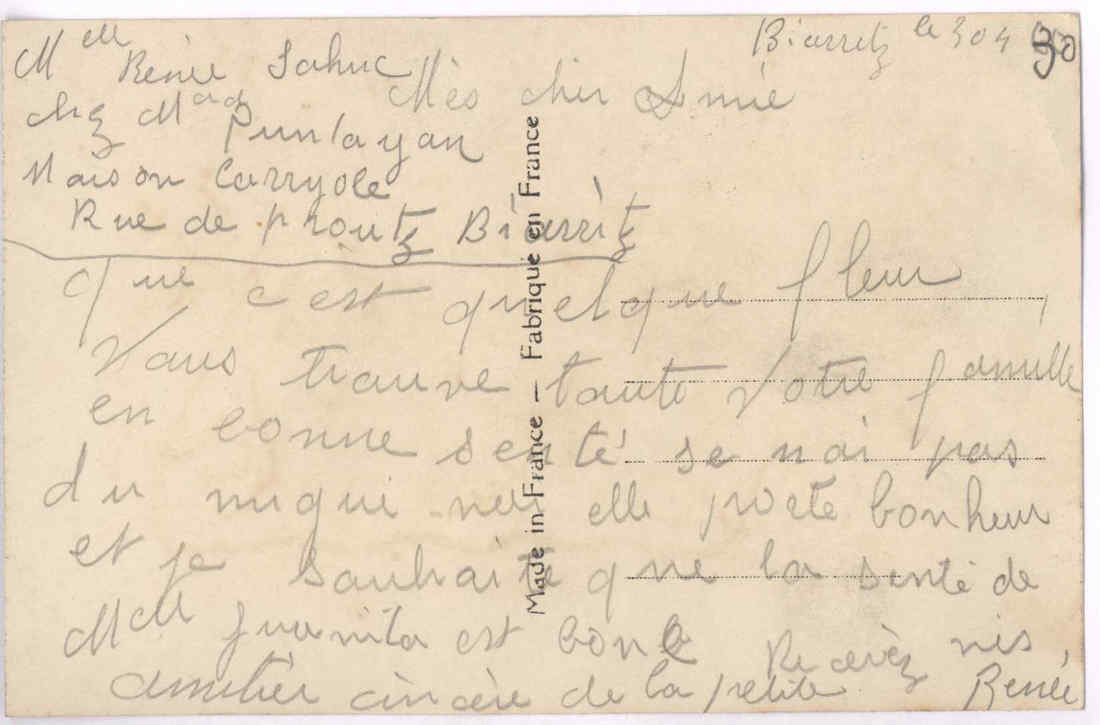 Biarritz le 30 4 30
Mell Renée Sahuc
chez Mad Puntayan
Maison Carryole
Rue de proutz Biarritz
Mes cher Amie
que c est quelque fleur
Vous trouve toute votre famille
en bonne senté se nai pas
du migui nei elle porte bonheur
et je souhaite que la senté de
Mell Juanita est bone Recevez mis
amitier cincère de la petite Renée
Made in France — Fabriqué en France